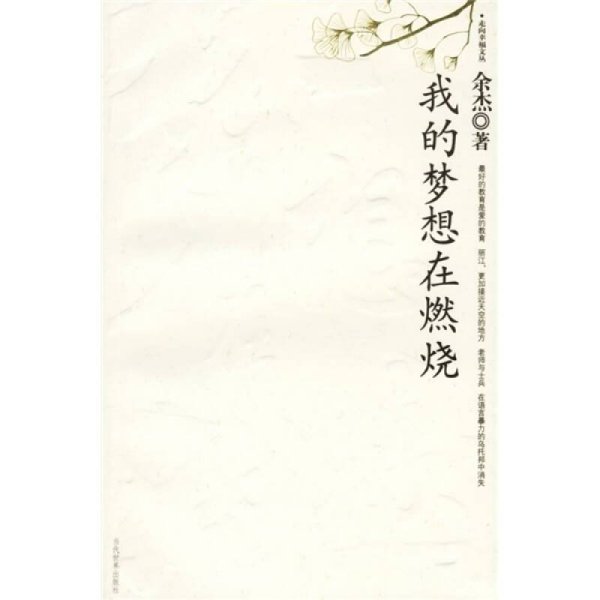 ·走向幸福文丛
余杰◎著
最好的教育是爱的教育 丽江，更加接近天空的地方 老师与士兵 在语言暴力的乌托邦中消失
我的梦想在燃烧
当代世界出版社